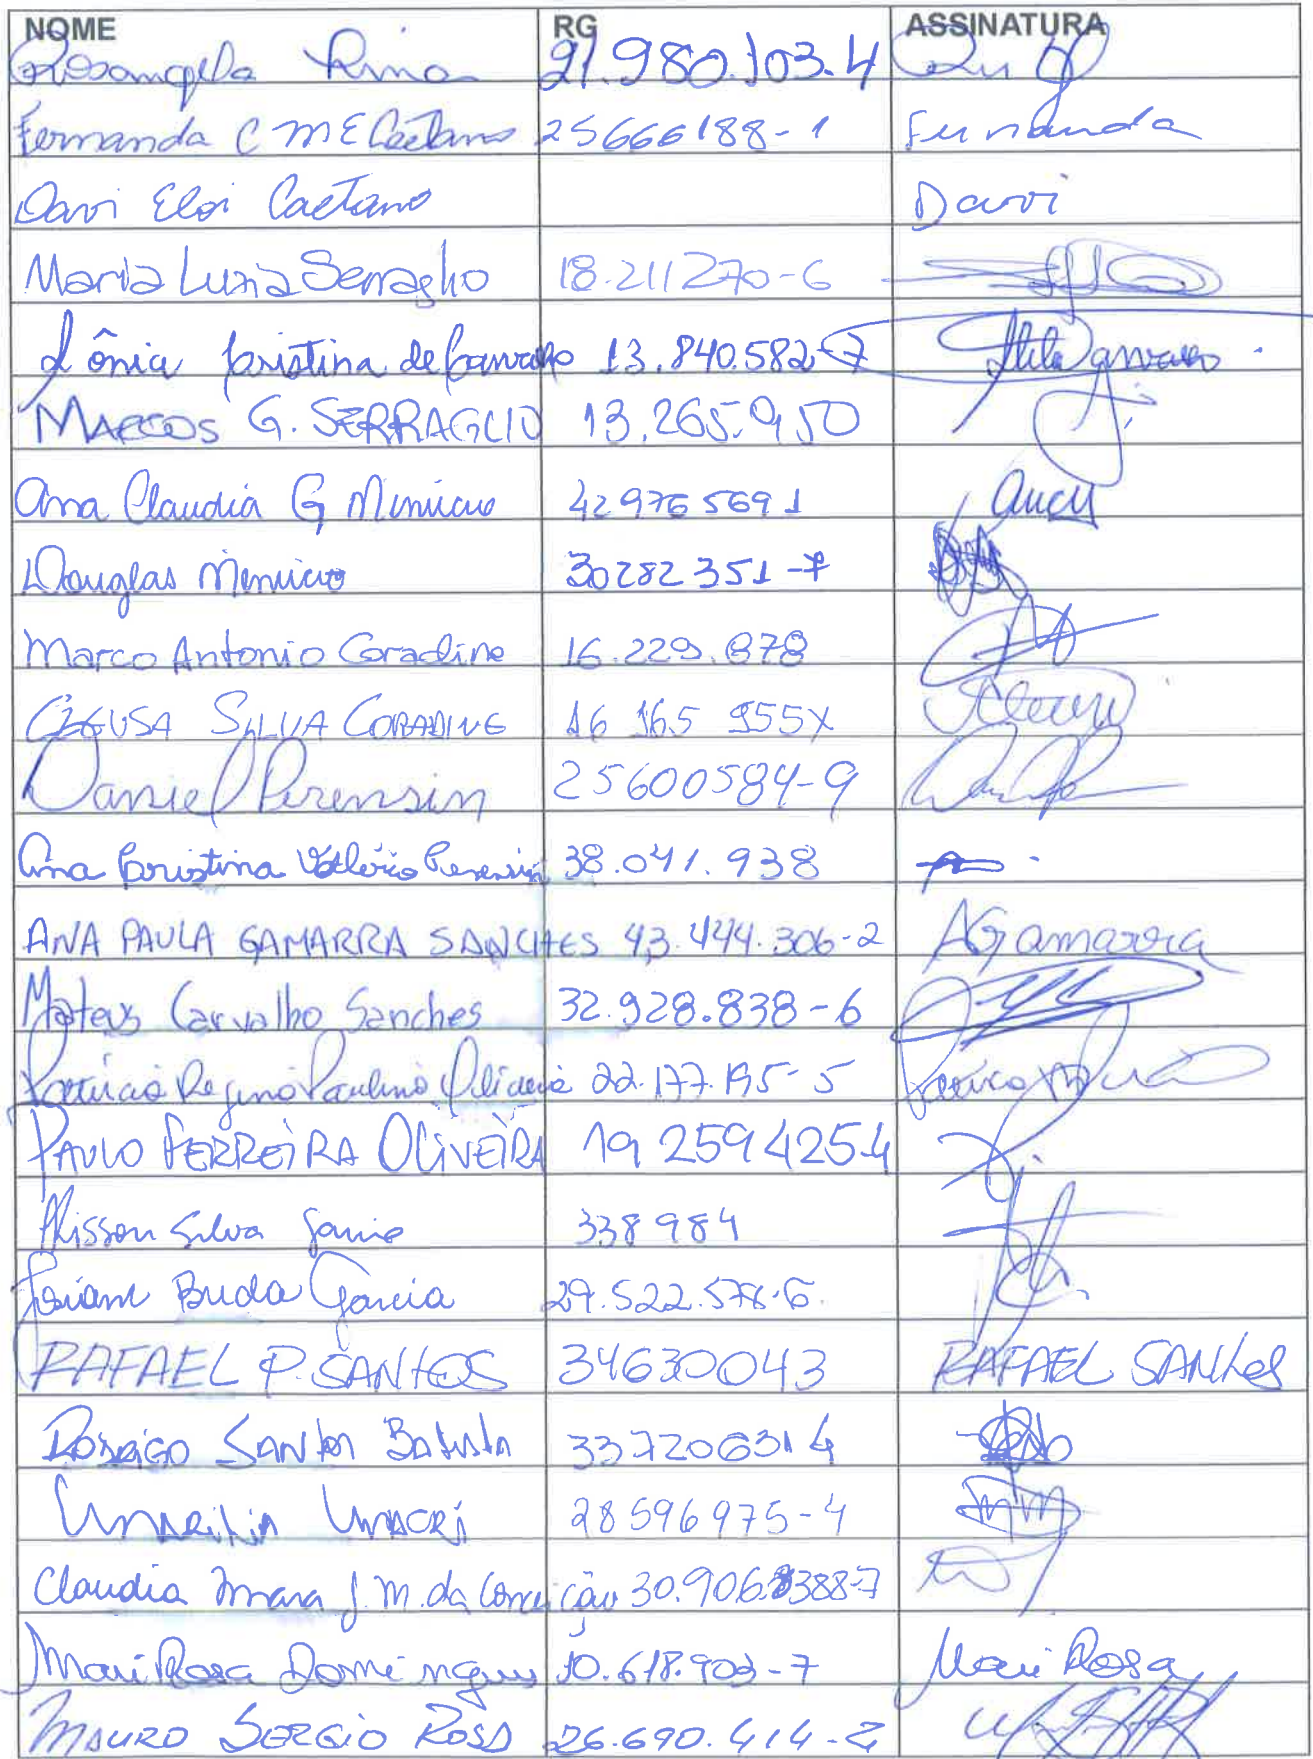 NOME RG ASSINATURA
Rosangela Lima 21.980.103.4
Fernanda C M E Caetano 25666188-1 Fernanda
Davi Eloi Caetano Davi
Maria Luzia Serraglio 18.211270-6
Sônia Cristina de Carvalho 13.840.582-7 Carvalho
MARCOS G. SERRAGLIO 13.265.950
Ana Claudia G Menucio 42976569 1
Douglas Menucio 30282351-7
Marco Antonio Coradine 16.229.878
CLEUSA SILVA CORADINE 16 165 955X
Daniel Perensin 25600584-9
Ana Cristina Valério Perensin 38.041.938
ANA PAULA GAMARRA SANCHES 43.444.306-2 AGamarra
Mateus Carvalho Sanches 32.928.838-6
Patricia Regina Paulino Oliveira 22.177.195-5
PAULO FERREIRA OLIVEIRA 19 2594254
Alisson Silva 338984
Buda Garcia 29.522.578-6
RAFAEL P. SANTOS 34630043 RAFAEL SANTOS
RODRIGO SANTOS Batista 337206314
Marilia Macri 28596975-4
Claudia Mara J. M. da Conceição 30.906.8388-7
Mari Rosa Domingues 10.618.903-7 Mari Rosa
MAURO SERGIO ROSA 26.690.414-2